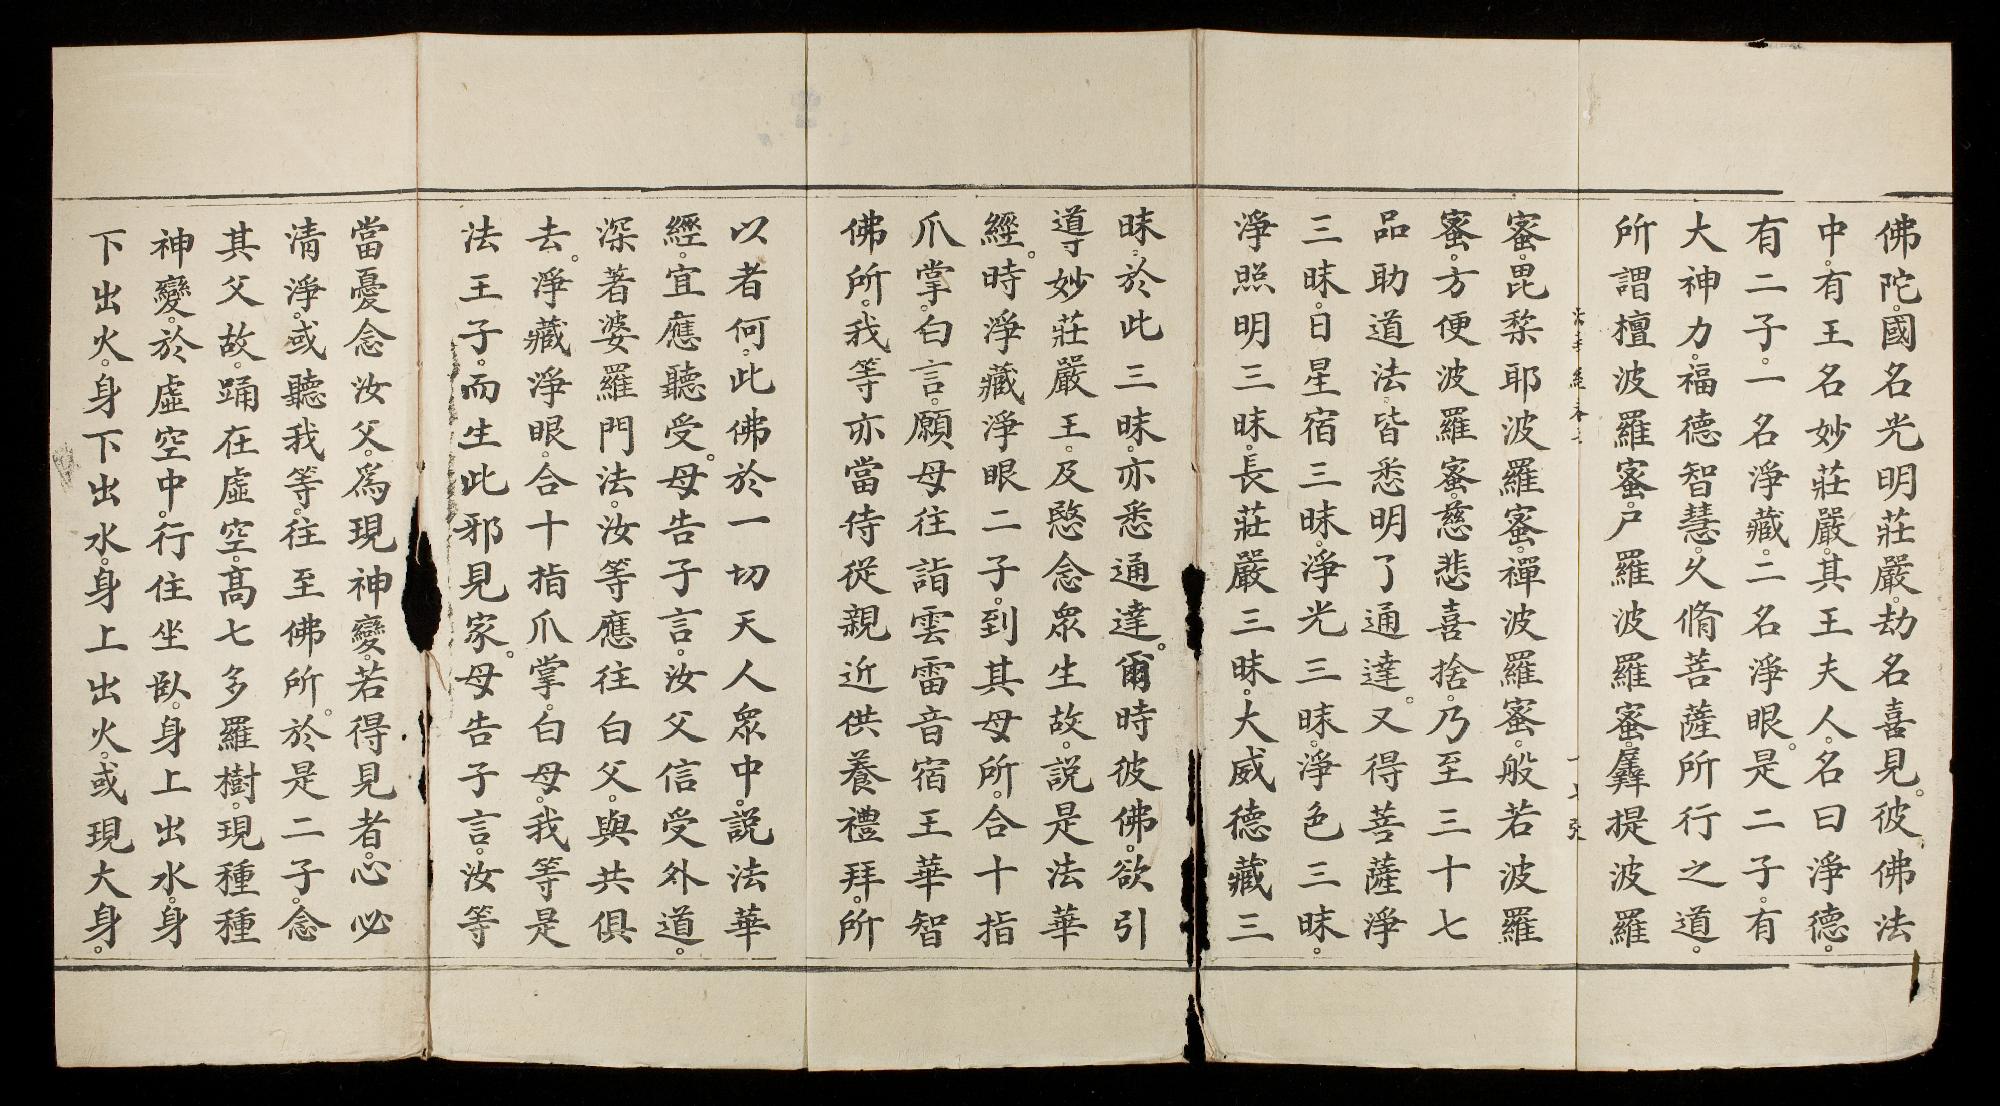 佛陀。國名光明莊嚴。劫名喜見。彼佛法
中。有王名妙莊嚴。其王夫人。名曰淨德。
有二子。一名淨藏。二名淨眼。是二子。有
大神力。福德智慧。久脩菩薩所行之道。
所謂檀波羅蜜。尸羅波羅蜜。羼提波羅
蜜。毘棃耶波羅蜜。禪波羅蜜。般若波羅
蜜。方便波羅蜜。慈悲喜捨。乃至三十七
品助道法。皆悉明了通達。又得菩薩淨
三昧。日星宿三昧。淨光三昧。淨色三昧。
淨照明三昧。長莊嚴三昧。大威德藏三
昧。於此三昧。亦悉通達。爾時彼佛。欲引
導妙莊嚴王。及愍念眾生故。說是法華
經。時淨藏淨眼二子。到其母所。合十指
爪掌。白言。願母往詣雲雷音宿王華智
佛所。我等亦當侍從親近供養禮拜。所
以者何。此佛於一切天人眾中。說法華
經。宜應聽受。母告子言。汝父信受外道。
深著婆羅門法。汝等應往白父。與共俱
去。淨藏淨眼。合十指爪掌。白母。我等是
法王子。而生此邪見家。母告子言。汝等
當憂念汝父。為現神變。若得見者。心必
清淨。或聽我等。往至佛所。於是二子。念
其父故。踊在虛空。高七多羅樹。現種種
神變。於虛空中。行住坐臥。身上出水。身
下出火。身下出水。身上出火。或現大身。